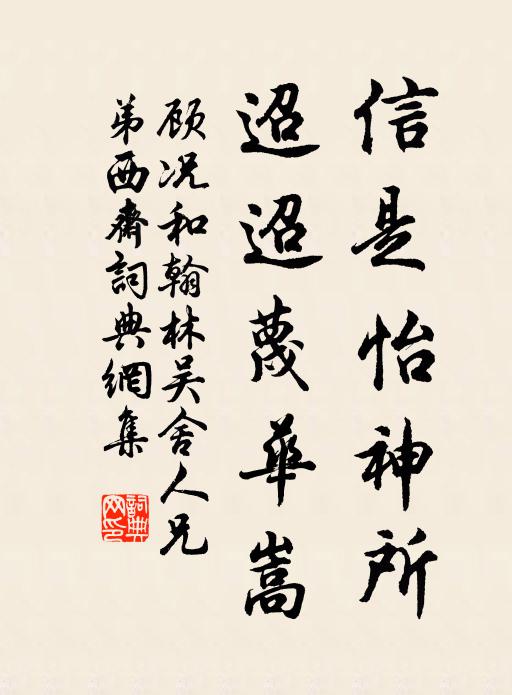 信是怡神所
迢迢蔑華嵩
顾况和翰林吴舍人兄
弟西齋詞典網集
詞典
网印